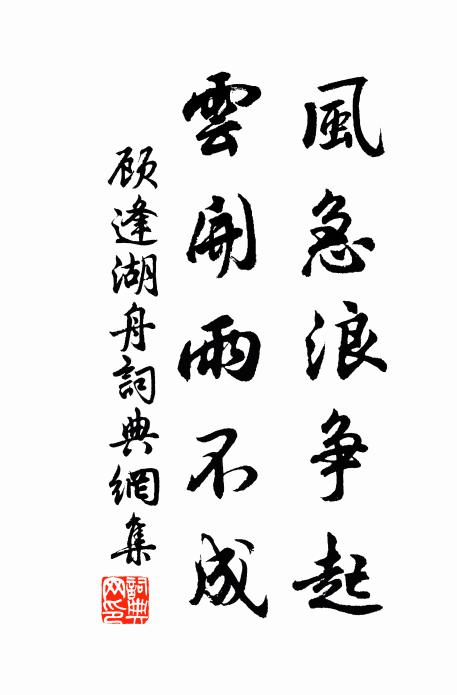 風急浪争起
雲開雨不成
顾逢湖舟詞典網集
詞典網印